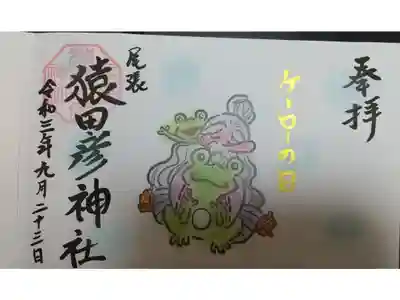 奉拝
ケーローの日
尾張
猿田彦神社
令和三年九月二十三日